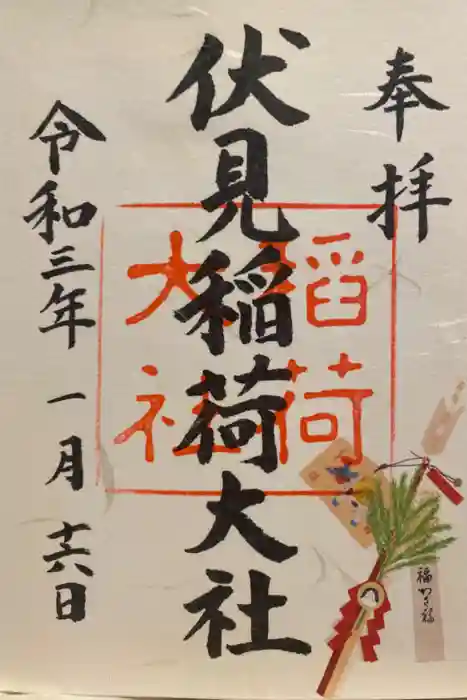 奉拝
伏見稲荷大社
令和三年一月十六日
稲荷
大社